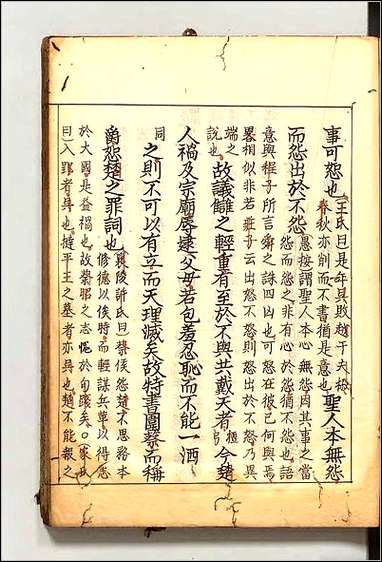 事可怨也
王氏曰是年吳敗越于夫椒
春秋亦削而不書猶是意也
聖人本無怨
而怨出於不怨
愚按謂聖人本心無怨因其事之當
怨而怨之非有心於怨猶不怨也語
意與程子所言舜之誅四凶也可怒在彼己何與焉
畧相似非若莊子云出怒不怒則怒出於不怒乃異
端之
說也
故議讎之輕重者至於不與共戴天者
今楚
人禍及宗廟辱逮父母若包羞忍恥而不能一洒
同
之則不可以有立而天理滅矣故特書圍蔡而稱
爵恕楚之罪詞也
襄陵許氏曰侯怨楚不思務本
修德以俟時而輕謀兵革以得
於大國是益禍也故蔡昭之志於句踐矣○家氏
曰入郢者吳也撻平王之墓者亦吳也楚不能報之